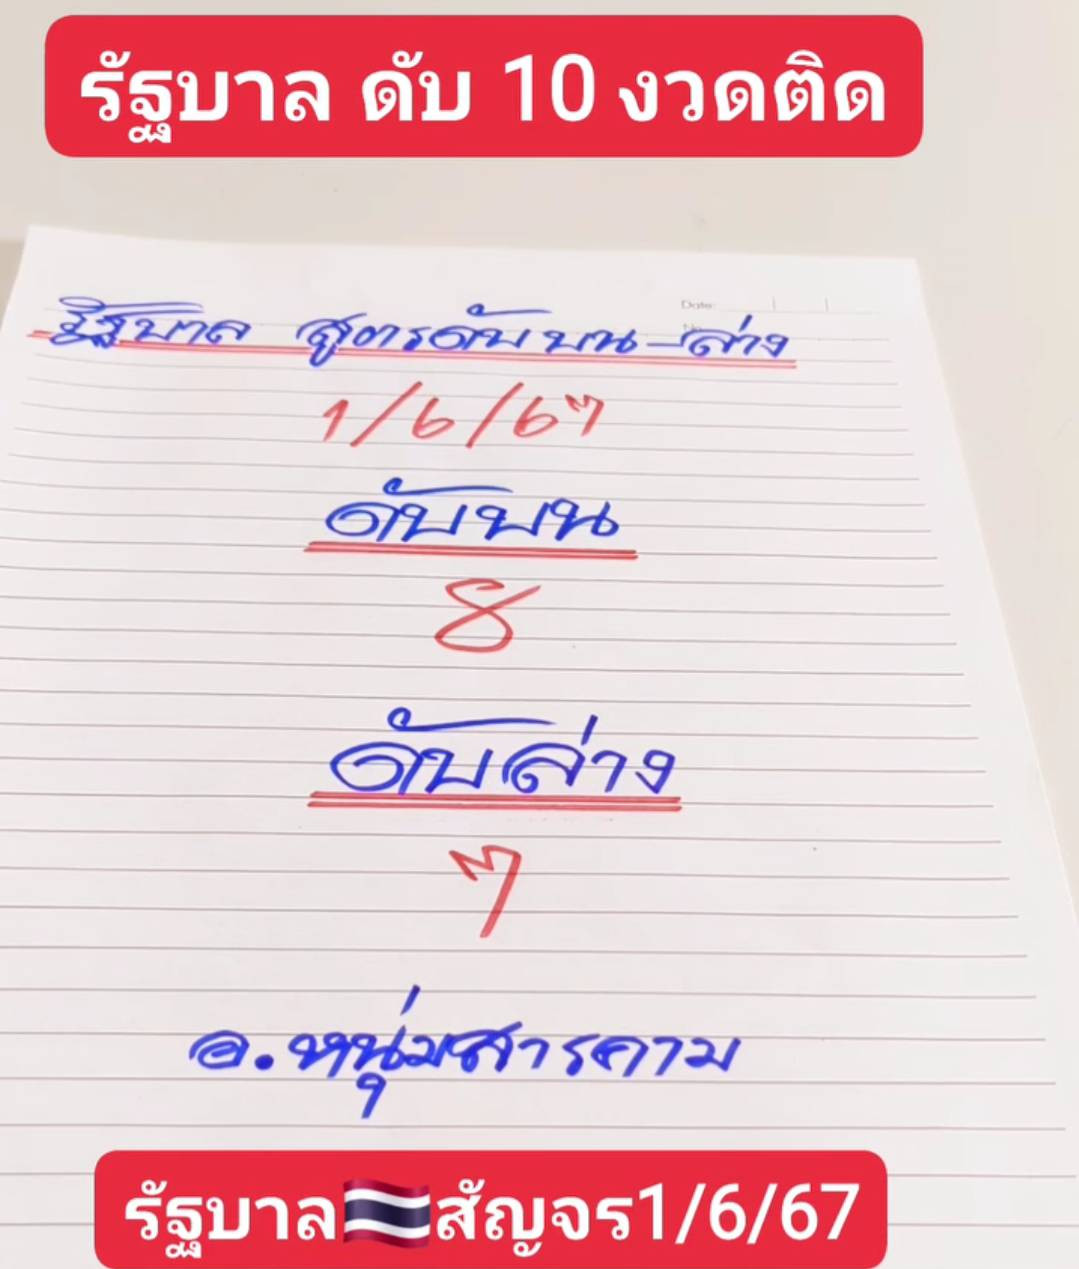 รัฐบาล ดับ 10 งวดติด
Date:
No.
รัฐบาล สูตรดับ บน-ล่าง
1/6/67
ดับบน
8
ดับล่าง
7
อ.หนุ่มสารคาม
รัฐบาล🇹🇭สัญจร1/6/67